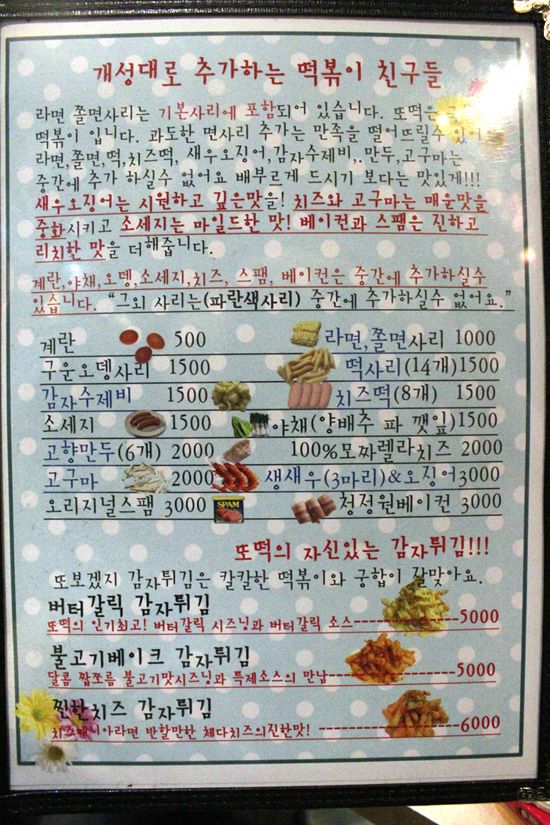 개성대로 추가하는 떡볶이 친구들
라면 쫄면사리는 기본사리에 포함되어 있습니다. 또떡은
떡볶이 입니다. 과도한 면사리 추가는 만족을 떨어뜨릴수 있어
라면,쫄면,떡,치즈떡, 새우오징어,감자수제비,.만두,고구마는
중간에 추가 하실수 없어요 배부르게 드시기 보다는 맛있게!!!
새우오징어는 시원하고 깊은맛을! 치즈와 고구마는 매운맛을
중화시키고 소세지는 마일드한 맛! 베이컨과 스팸은 진하고
리치한 맛을 더해줍니다.
계란,야채,오뎅,소세지,치즈, 스팸, 베이컨은 중간에 추가하실수
있습니다. "그외 사리는(파란색사리) 중간에 추가하실수 없어요."
계란 500 라면,쫄면사리 1000
구운오뎅사리 1500 떡사리(14개)1500
감자수제비 1500 치즈떡(8개) 1500
소세지 1500 야채(양배추 파 깻잎)1500
고향만두(6개) 2000 100%모짜렐라치즈 2000
고구마 2000 생새우(3마리)&오징어3000
오리지널스팸 3000 SPAM 청정원베이컨 3000
또떡의 자신있는 감자튀김!!!
또보겠지 감자튀김은 칼칼한 떡볶이와 궁합이 잘맞아요.
버터갈릭 감자튀김
또떡의 인기최고! 버터갈릭 시즈닝과 버터갈릭 소스------5000
불고기베이크 감자튀김
달콤 짭쪼름 불고기맛시즈닝과 특제소스의 만남------5000
찐한치즈 감자튀김
치즈매니아라면 반할만한 체다치즈의진한맛!------6000